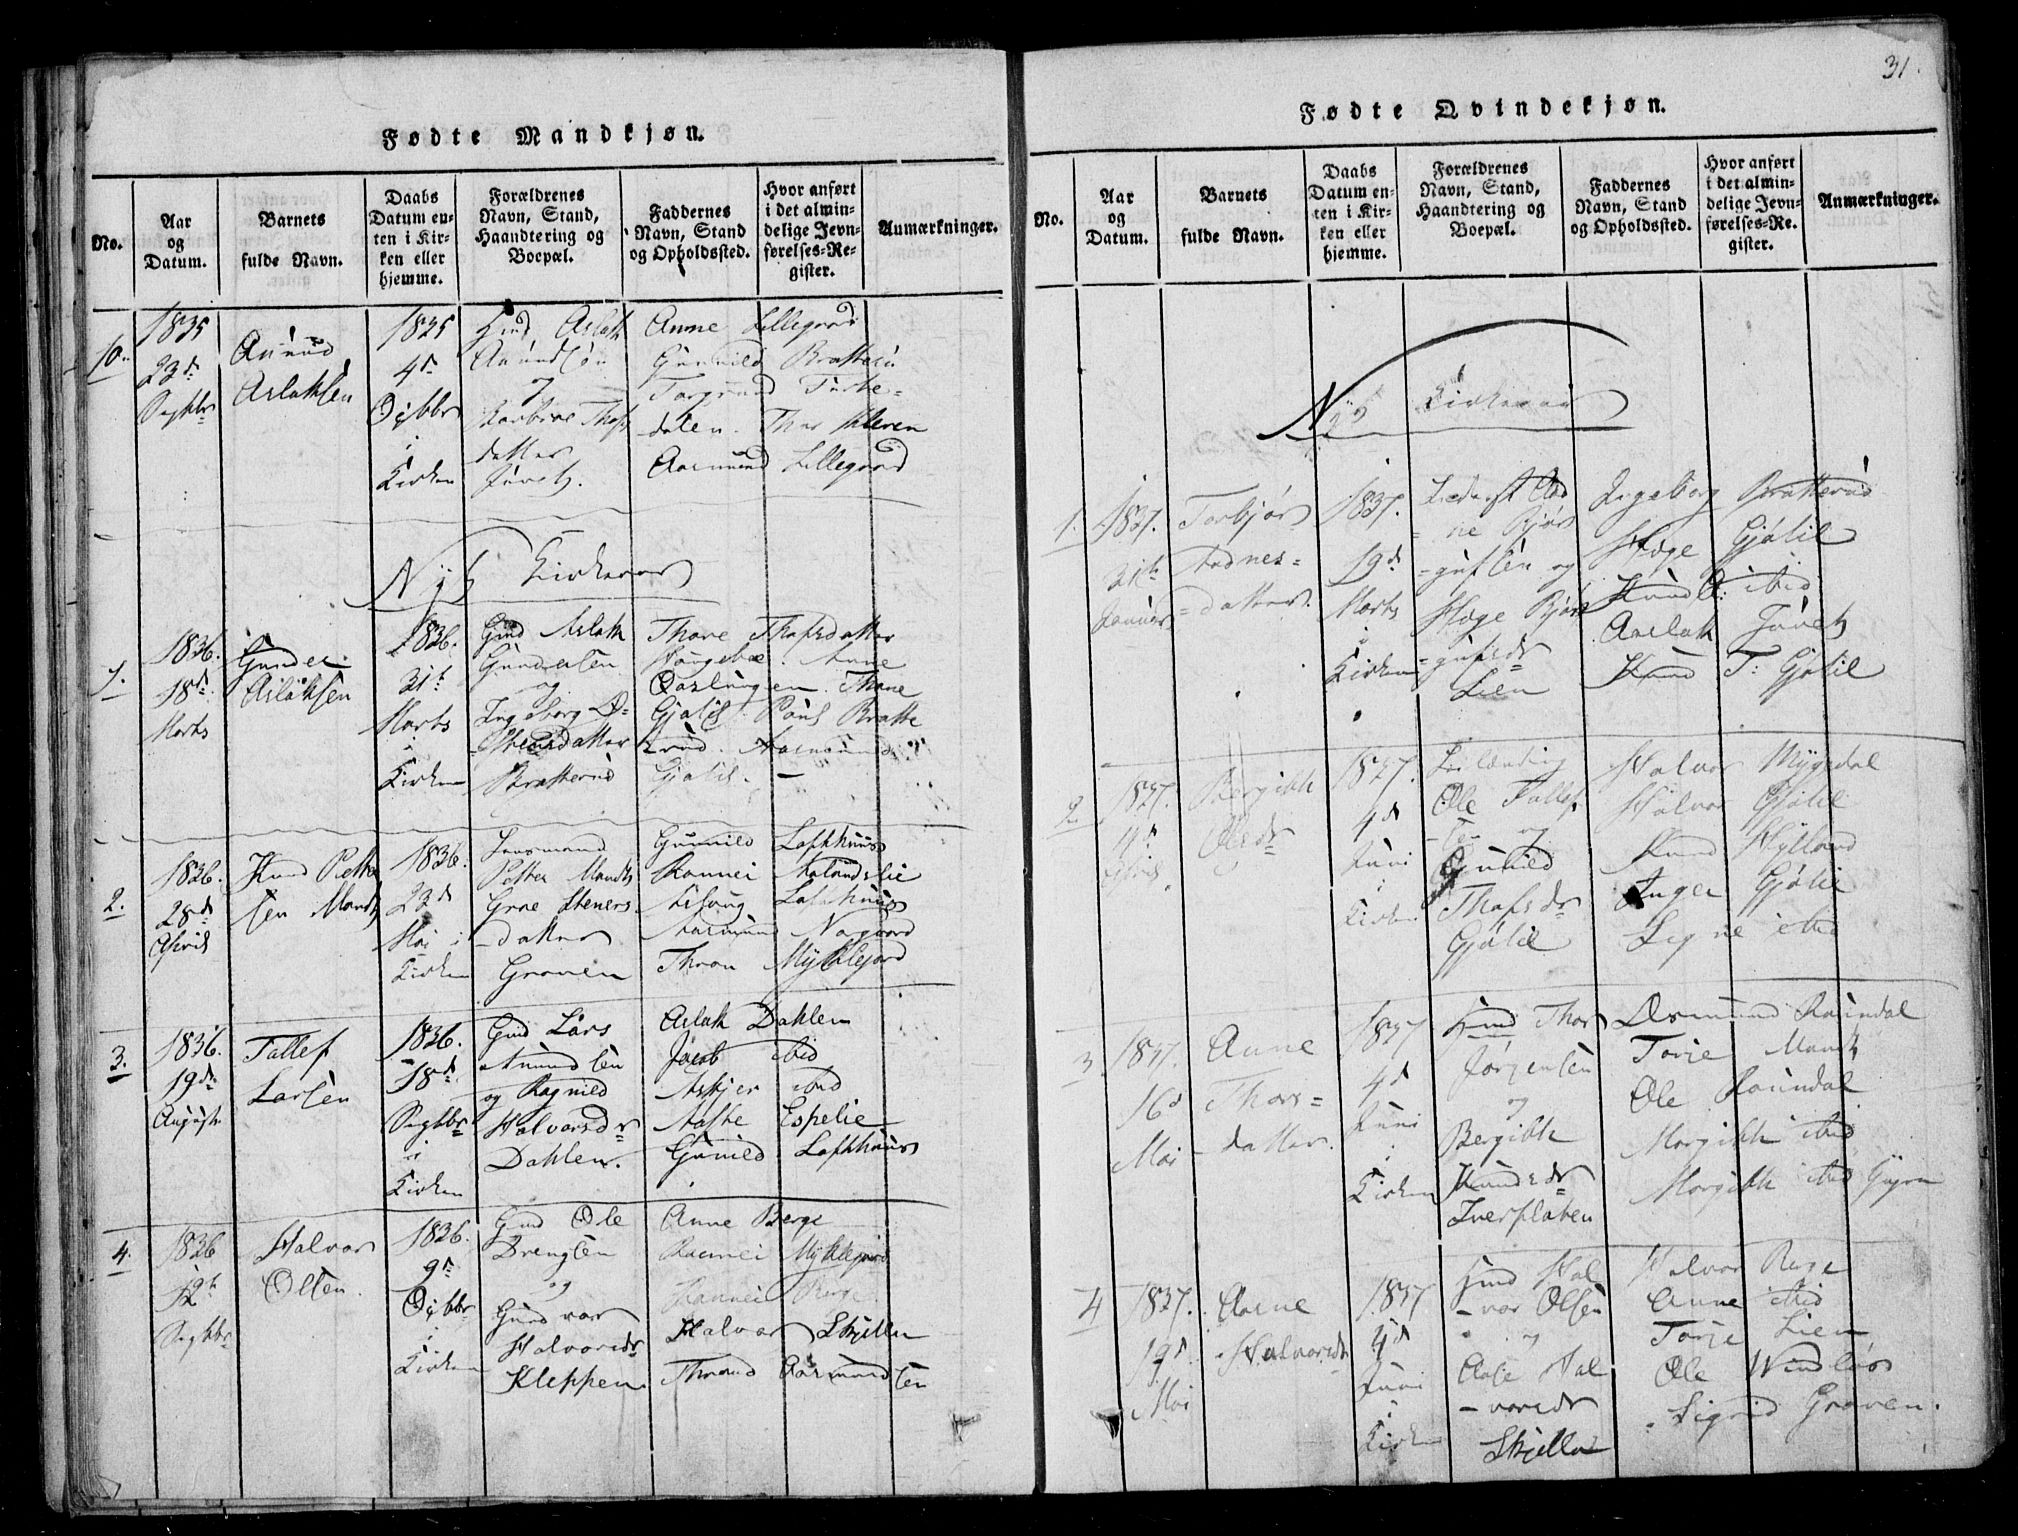 Fødte Mandkjøn.
No.
Aar og Datum.
Barnets fulde Navn.
Daabs Datum enten i Kirken eller hjemme.
Forældrenes Navn, Stand, Haandtering og Boepæl.
Faddernes Navn, Stand og Opholdssted.
Hvor anført i det almindelige Jevnførelses-Register.
Anmærkninger.
10.
1835
23d
Septbr
Anund
Aslaksen
1835
4d
Octbr
i
Kirken
Aslak
Anundsøn
og
datter
Anne Lillegaard
Gunnild Bratterü
Torgrund
dalen. Thor
Aasmund Lillegaard
Nyt Kirkeaar
1.
1836.
18d
Marts
Gunder
Aslaksen
1836.
31t
Marts
i
Kirken
Gmd Aslak
Gundersen
og
Ingeborg
datter
Bratterud
Thone Thofsdatter
Anne
Thone
Gjøtil Poul Bratte
rud. Aasmund
Gjøtil.
2.
1836.
28d
April
Knud Petter
sen Mandt
1836.
23d
Mai i
Kirken
Lensmand
Petter Mandt
Groe Steners
datter
Groven
Gunnild Lofthuus
Ronnei
Lofthuus
Aasmund Nagaard
Thron Myklejord
3.
1836.
19d
August
Tallef
Larsen
1836.
18d
Septbr
i
Kirken
Gmd Lars
Anundsen
og Ragnild
Halvorsdr
Dahlen.
Aslak Dahlen
Jacob ibid
Askjer ibid
Espelie
Gunild Lofthuus
4.
1836
12t
Septbr
Halvor
Olsen.
1836.
9d
Octbr
i
Kirken
Gmd Ole
Drengsen
og
Gundvor
Halvorsdr
Kleppen
Anne Berge
Ronnei Myklejord
Ronnei Berge
Halvor Skjelle
Thrond Aasmund
sen
31.
Fødte Qvindekjøn.
No.
Aar og Datum.
Barnets fulde Navn.
Daabs Datum enten i Kirken eller hjemme.
Forældrenes Navn, Stand, Haandtering og Boepæl.
Faddernes Navn, Stand og Opholdssted.
Hvor anført i det almindelige Jevnførelses-Register.
Anmærkninger.
Nyt Kirkeaar
1.
1837.
31te
Januar
Torbjør
Aadnes-
datter.
1837.
19d
Marts
i
Kirken
ne Bjør
gufsen og
Høge Bjør
gufsdr
Lien
Ingeborg Bratterud
Høge Gjøtil
Knud O: ibid
Aaslak
Knud T: Gjøtil
2
1837.
Bergith
Olsdr
1837.
4d
Juni
i
Kirken
Leilænding
Ole Tallef
sen og
Gunild
Thofsdr
Gjøtil
Halvor Mygedal
Halvor Gjøtil
Knud Hylland
Inger Gjøtil
Signe ibid
3
1837.
16d
Mai
Anne
Thors-
datter.
1837
4d
Juni
i
Kirken
Hmd Thor
Jørgensen
og
Bergith
Knudsdr
Iverpladsen
Osmund Raundal
Torje Mandt
Ole Raundal
Margith ibid
Margith ibid
4
1837.
19d
Mai
Aasne
Halvorsdr
1837
4d
Juni
i
Kirken
Hmd Hal
vor Olsen
og
Aase Hal
vorsdr
Skjelle
Halvor Berge
Anne ibid
Torje Lien
Ole
Sigrid Groven.